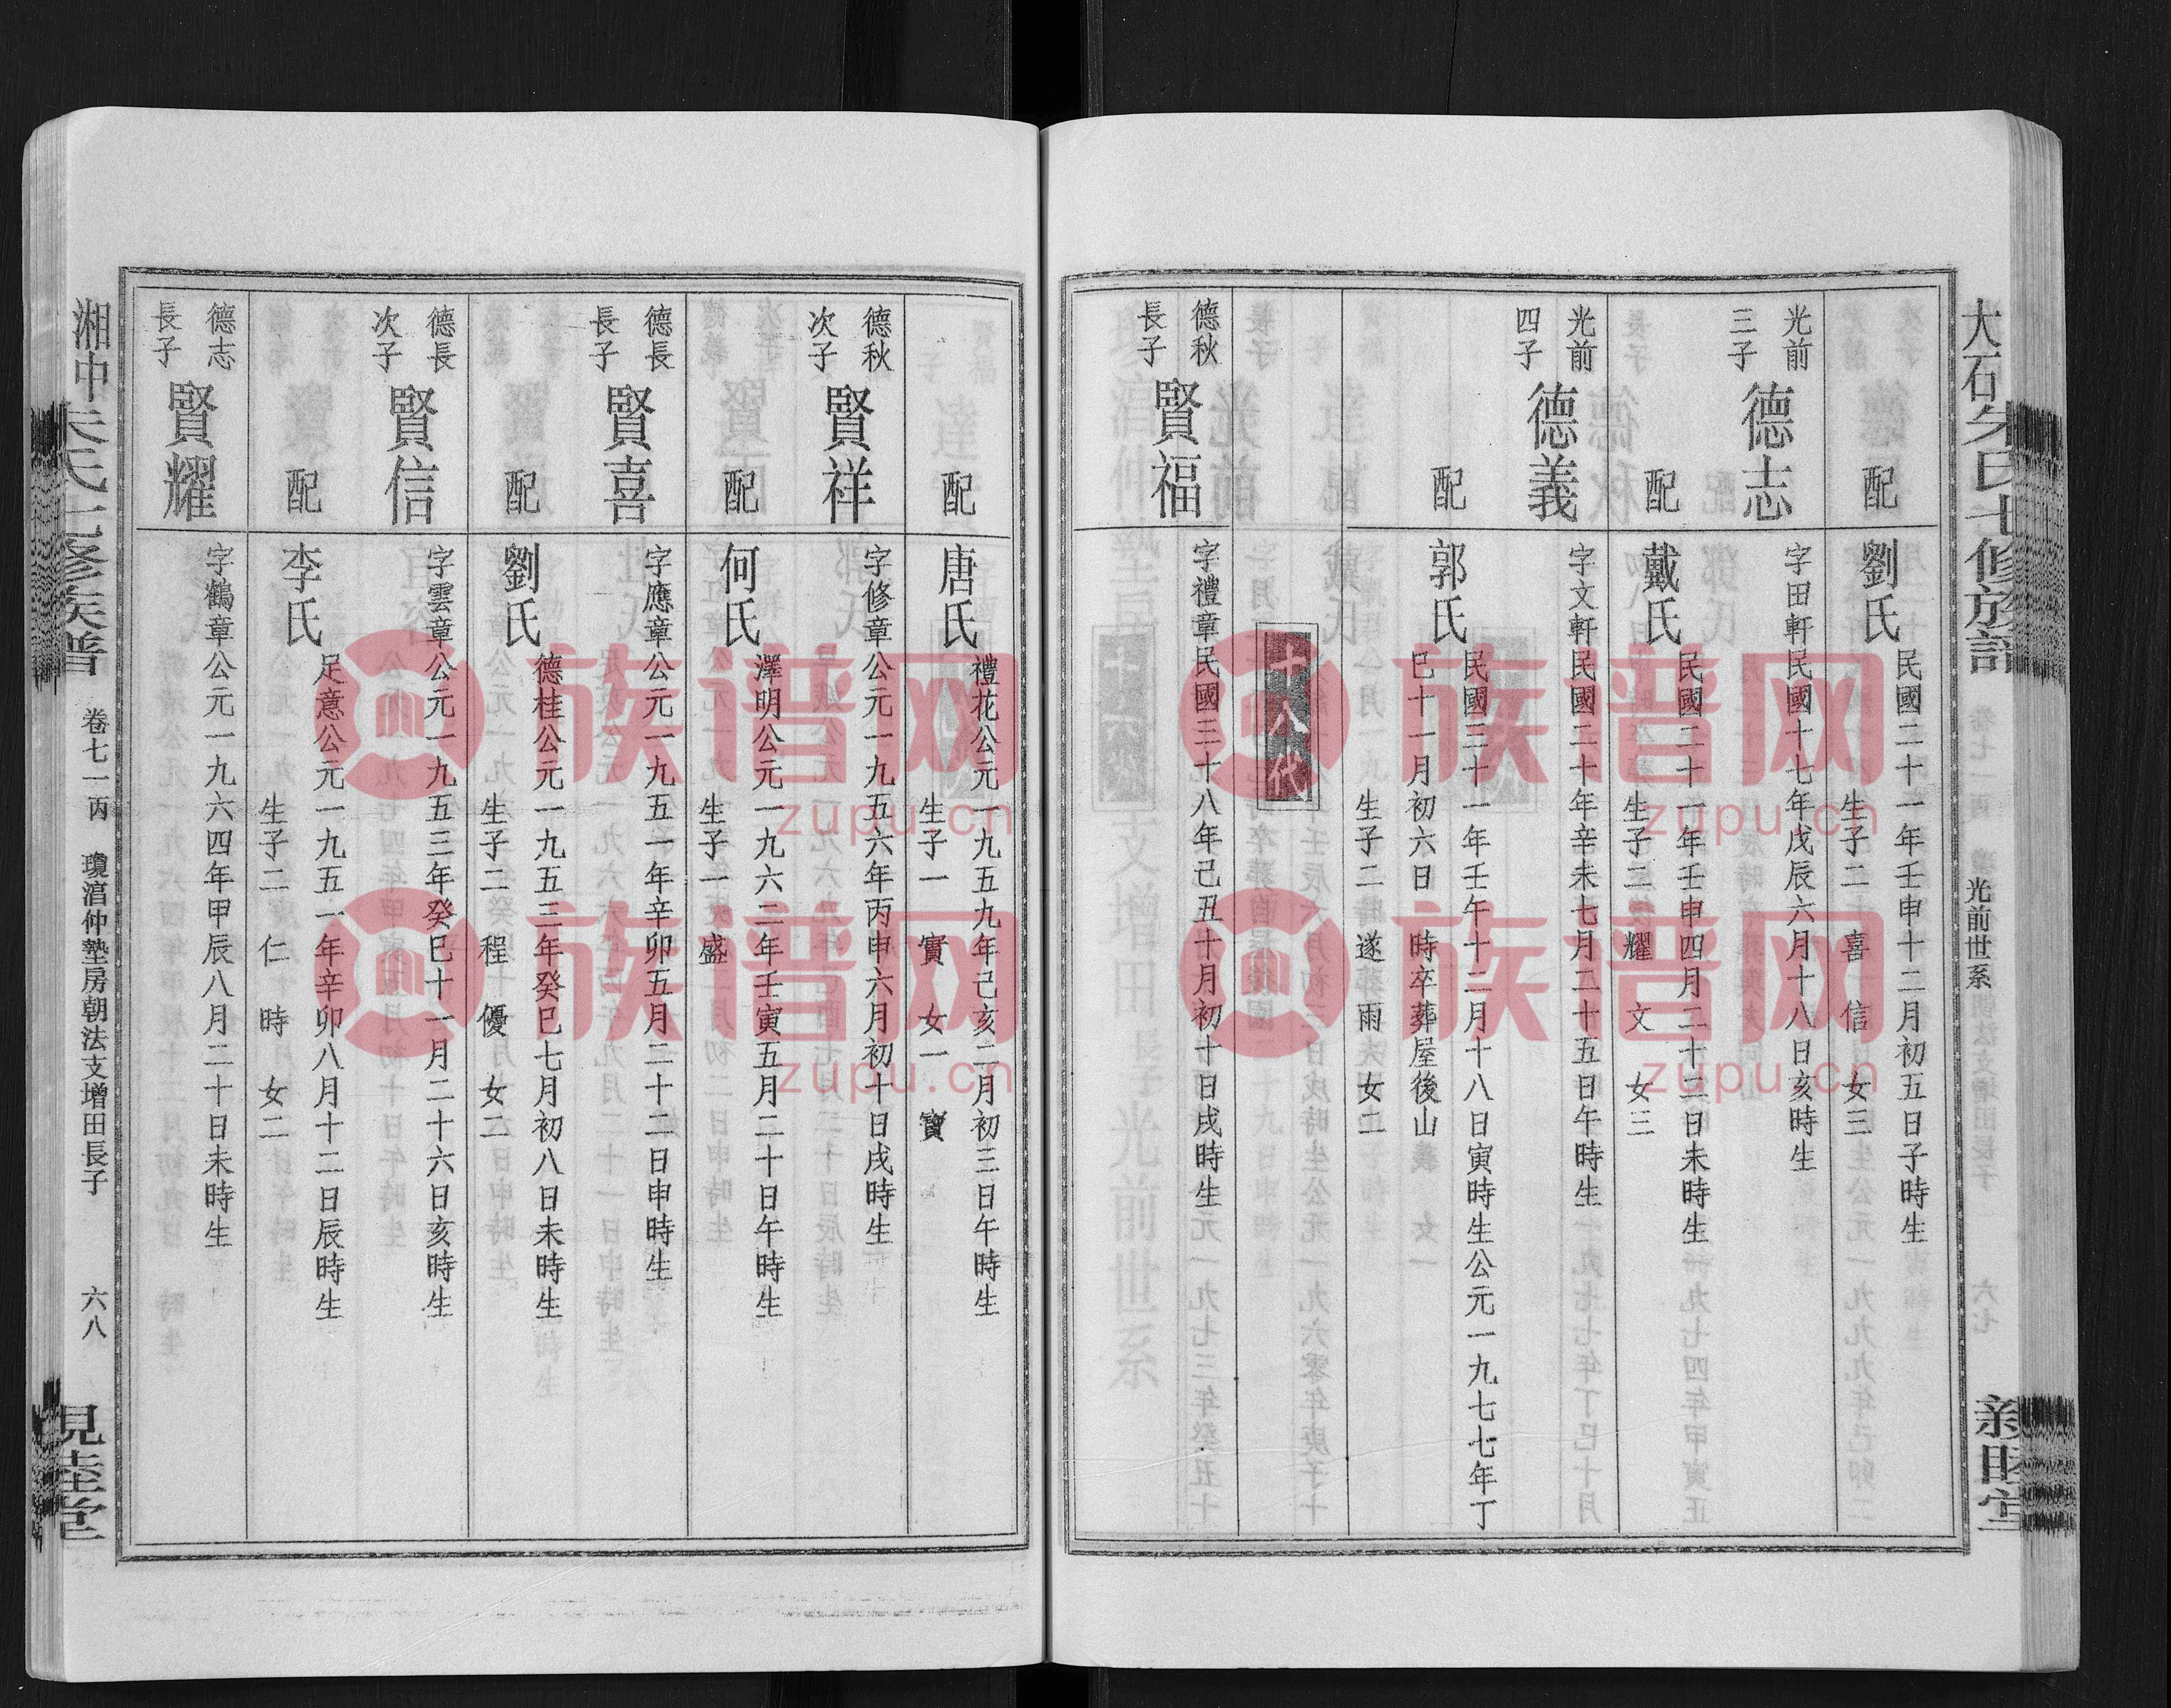 大石朱氏七修族譜
光前世系
親睦堂
配 劉氏 民國二十一年壬申十二月初五日子時生
生子二 喜 信 女三
光前三子 德志 字田軒民國十七年戊辰六月十八日亥時生
配 戴氏 民國二十一年壬申四月二十三日未時生
生子二 耀 文 女三
光前四子 德義 字文軒民國二十年辛未七月二十五日午時生
配 郭氏 民國三十一年壬午十二月十八日寅時生公元一九七七年丁
巳十一月初六日 時卒葬屋後山
生子二 遂 雨 女二
十八代
德秋長子 賢福 字禮章民國三十八年己丑十月初十日戌時生
配 唐氏 禮花公元一九五九年己亥二月初三日午時生
生子一 實 女一 寶
德秋次子 賢祥 字修章公元一九五六年丙申六月初十日戌時生
配 何氏 澤明公元一九六二年壬寅五月二十日午時生
生子一 盛
德長長子 賢喜 字應章公元一九五一年辛卯五月二十二日申時生
配 劉氏 德桂公元一九五三年癸巳七月初八日未時生
生子二 程 優 女二
德長次子 賢信 字雲章公元一九五三年癸巳十一月二十六日亥時生
配 李氏 足意公元一九五一年辛卯八月十二日辰時生
生子二 仁 時 女二
德志長子 賢耀 字鶴章公元一九六四年甲辰八月二十日未時生
湘中朱氏七修族譜 卷七一丙 瓊涫仲塾房朝法支增田長子 六八
族谱网
zupu.cn
族谱网
zupu.cn
族谱网
zupu.cn
族谱网
zupu.cn